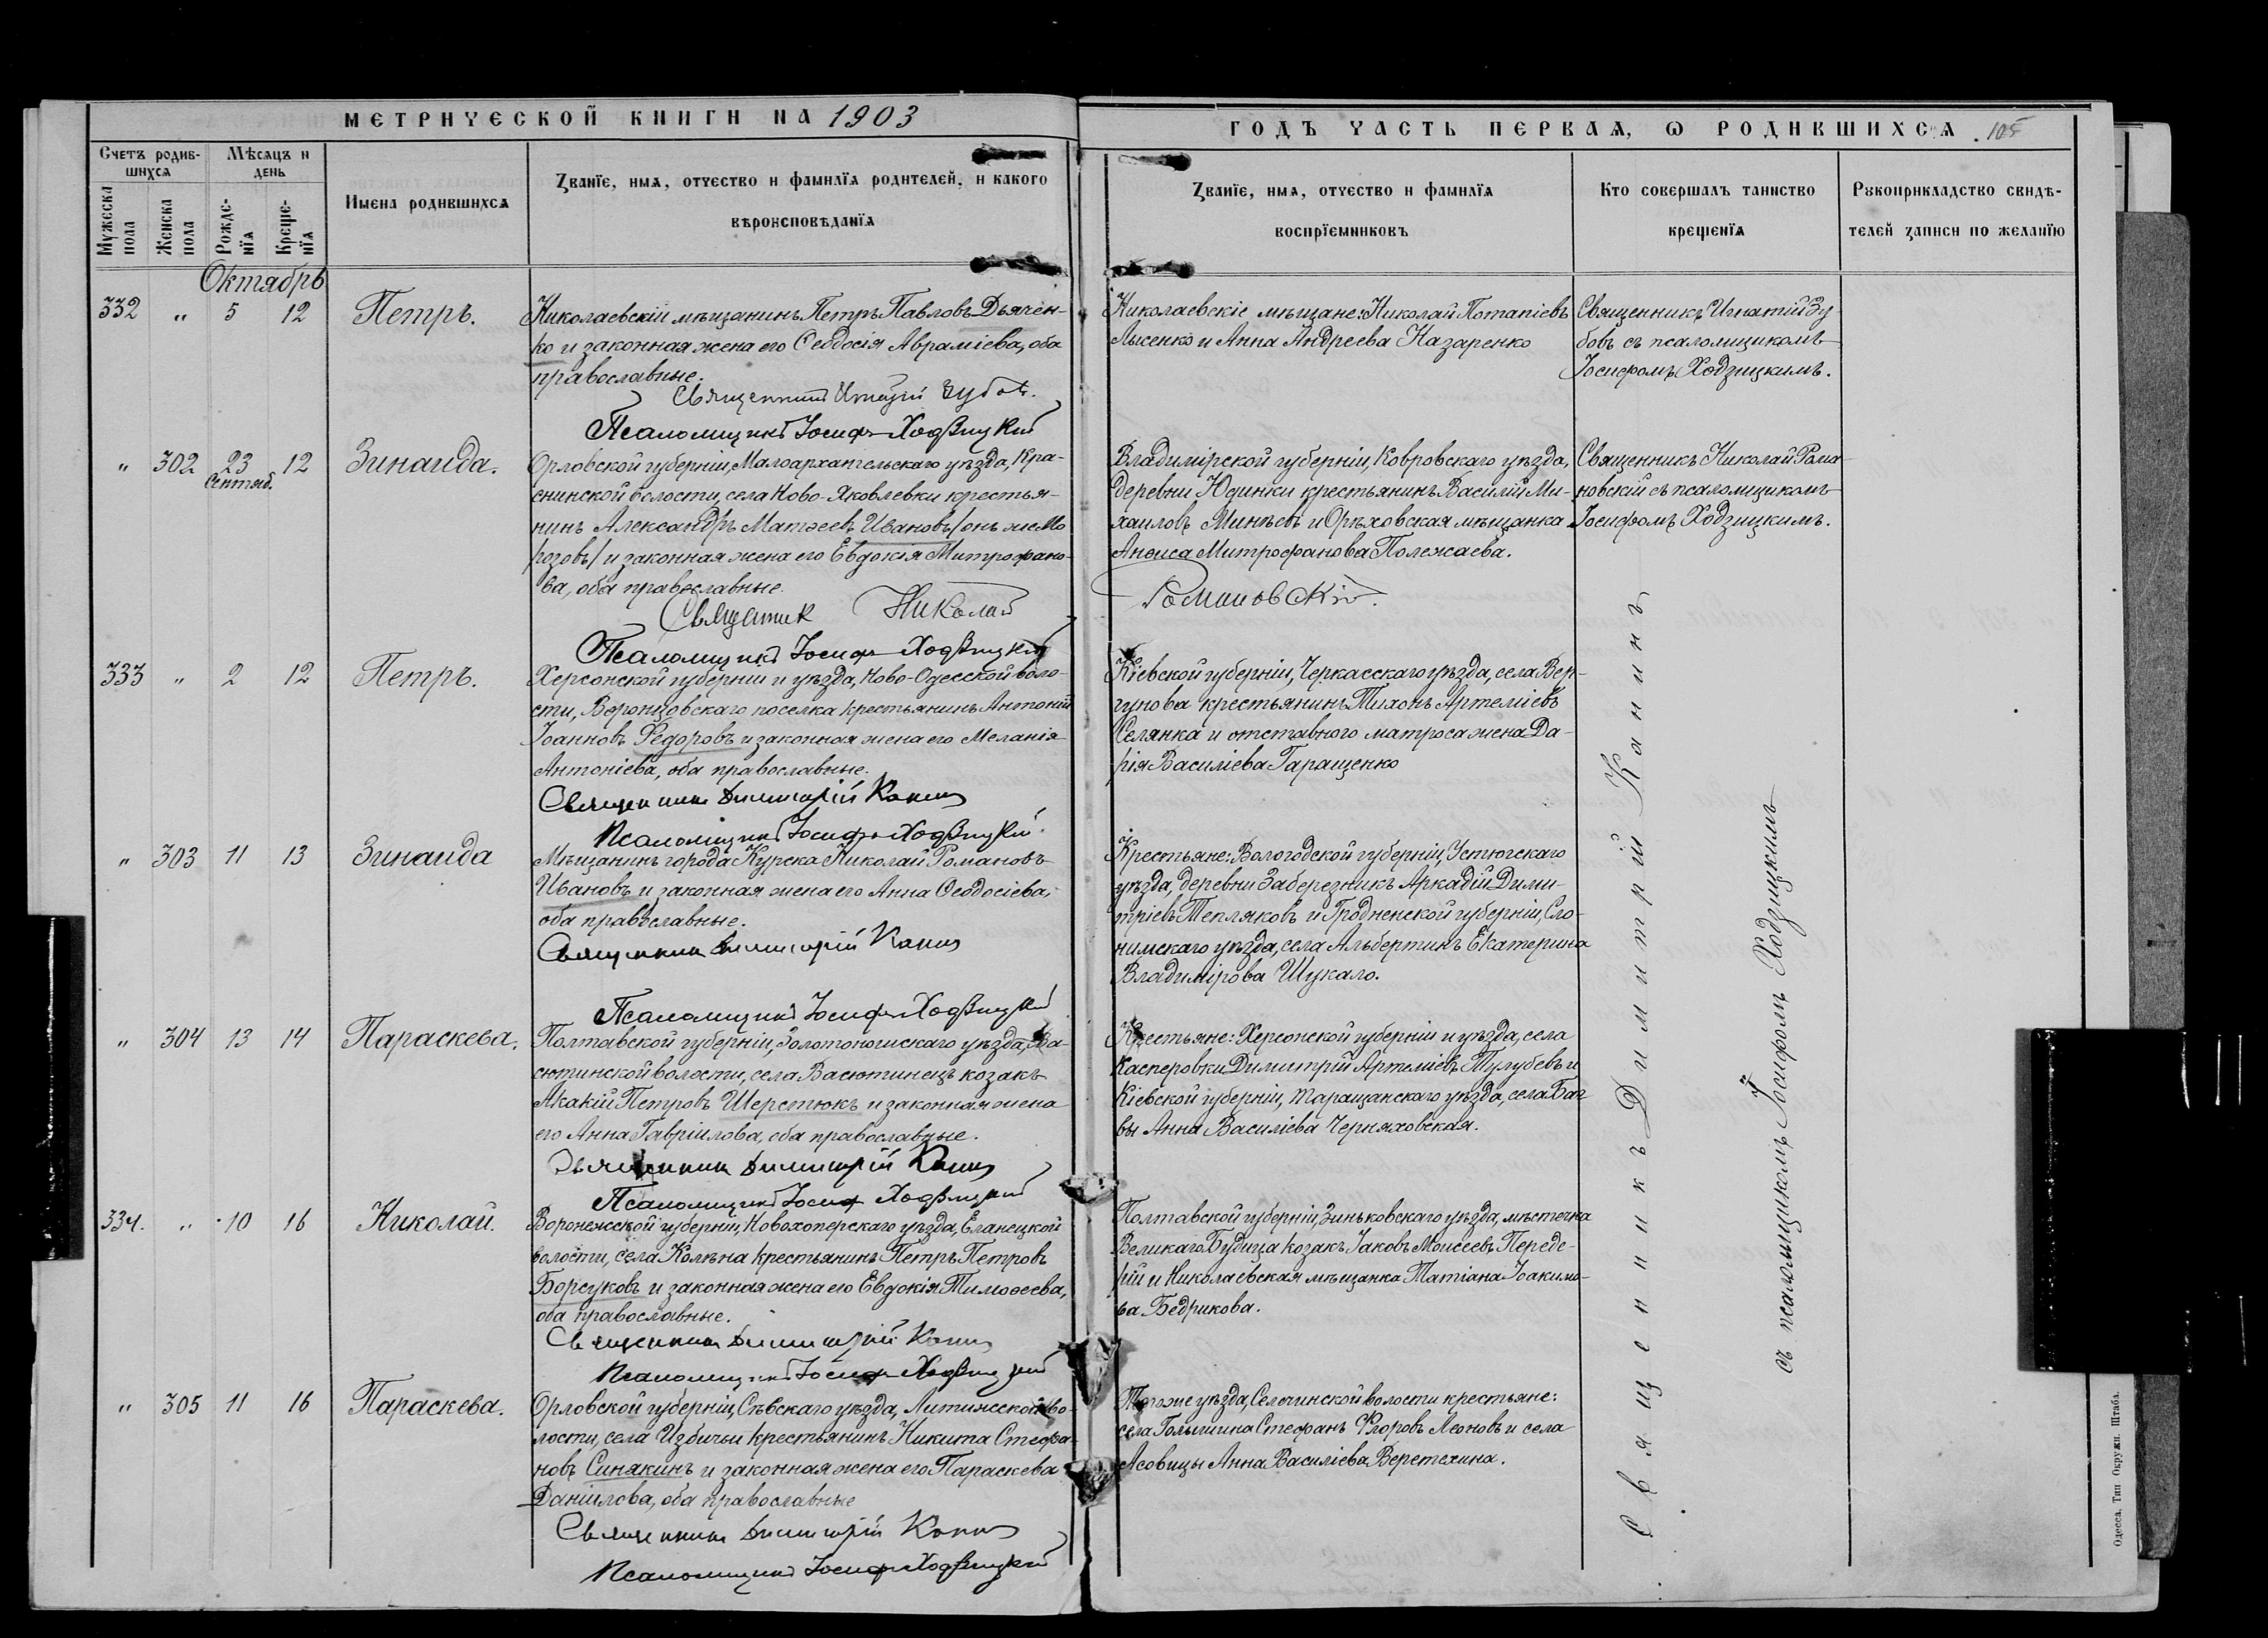 МЕТРИЧЕСКОЙ КНИГИ НА 1903
ГОДЪ ЧАСТЬ ПЕРВАЯ, Ѡ РОДИВШИХСЯ 105
Счетъ родив-
шихся
Мѣсяцъ и
день
Мужеска
пола
Женска
пола
Рожде-
нїя
Креще-
нїя
Имена родившихся
Званїе, имя, отчество и фамилїя родителей, и какого
вѣроисповѣданїя
Званїе, имя, отчество и фамилїя
воспрїемниковъ
Кто совершалъ таинство
крещенїя
Рукоприкладство свидѣ-
телей записи по желанїю
Октябрь
332 " 5 12 Петръ.
Николаевскій мѣщанинъ Петръ Павловъ Дьячен-
ко и законная жена его Ѳеодосія Авраміева, оба
православные.
Священникъ Игнатій Зубовъ.
Псаломщикъ Іосифъ Ходзицкій
Николаевскіе мѣщане: Николай Потапіевъ
Лысенко и Анна Андреева Назаренко
Священникъ Игнатій Зу-
бовъ съ псаломщикомъ
Іосифомъ Ходзицкимъ.
" 302 23 12 Зинаида.
Сентяб.
Орловской губерніи, Малоархангельскаго уѣзда, Кра-
снинской волости, села Ново-Яковлевки крестья-
нинъ Александръ Матѳеевъ Ивановъ /онъ же Мо
розовъ/ и законная жена его Евдокія Митрофано-
ва, оба православные.
Священник Николай
Романовскій.
Псаломщикъ Іосифъ Ходзицкій
Владимірской губерніи, Ковровскаго уѣзда,
деревни Юдинки крестьянинъ Василій Ми-
хаиловъ Минѣевъ и Орѣховская мѣщанка
Анѳиса Митрофанова Полежаева.
Священникъ Николай Рома-
новскій съ псаломщикомъ
Іосифомъ Ходзицкимъ.
333 " 2 12 Петръ.
Херсонской губерніи и уѣзда, Ново-Одесской воло-
сти, Воронцовскаго поселка крестьянинъ Антоній
Іоанновъ Ѳедоровъ и законная жена его Меланія
Антоніева, оба православные.
Священникъ Димитрій Канинъ
Псаломщикъ Іосифъ Ходзицкій.
Кіевской губерніи, Черкасскаго уѣзда, села Вер-
гунова крестьянинъ Тихонъ Артеміевъ
Селянка и отставного матроса жена Да-
рія Василіева Гаращенко
" 303 11 13 Зинаида
Мѣщанинъ города Курска Николай Романовъ
Ивановъ и законная жена его Анна Ѳеодосіева,
оба православные.
Священникъ Димитрій Канинъ
Псаломщикъ Іосифъ Ходзицкій
Крестьяне: Вологодской губерніи, Устюгскаго
уѣзда, деревни Заберезникъ Аркадій Дими-
тріевъ Тепляковъ и Гродненской губерніи, Сло-
нимскаго уѣзда, села Альбертинъ Екатерина
Владимірова Шукало.
" 304 13 14 Параскева.
Полтавской губерніи, Золотоношскаго уѣзда, Ва-
сютинской волости, села Васютинецъ козакъ
Акакій Петровъ Шерстюкъ и законная жена
его Анна Гавріилова, оба православные.
Священникъ Димитрій Канинъ
Псаломщикъ Іосифъ Ходзицкій
Крестьяне: Херсонской губерніи и уѣзда, села
Касперовки Димитрій Артеміевъ Тулубевъ и
Кіевской губерніи, Таращанскаго уѣзда, села Баг
вы Анна Василіева Черняховская.
334. " 10 16 Николай.
Воронежской губерніи, Новохоперскаго уѣзда, Еланецкой
волости, села Колѣна крестьянинъ Петръ Петровъ
Борсуковъ и законная жена его Евдокія Тимоѳеева,
оба православные.
Священникъ Димитрій Канинъ
Псаломщикъ Іосифъ Ходзицкій
Полтавской губерніи, Зиньковскаго уѣзда, мѣстечка
Великаго Будища козакъ Іаковъ Моисеевъ Переде-
рій и Николаевская мѣщанка Татіана Іоакимо-
ва Бедрикова.
" 305 11 16 Параскева.
Орловской губерніи, Сѣвскаго уѣзда, Литижской во-
лости, села Избичьи крестьянинъ Никита Стефа-
новъ Синякинъ и законная жена его Параскева
Даніилова, оба православные
Священникъ Димитрій Канинъ
Псаломщикъ Іосифъ Ходзицкій
Того же уѣзда, Селечинской волости крестьяне:
села Голышина Стефанъ Флоровъ Леоновъ и села
Асовицы Анна Василіева Веретехина.
Священникъ Димитрій Канинъ
съ псаломщикомъ Іосифомъ Ходзицкимъ
Одесса. Тип Окружн. Штаба.